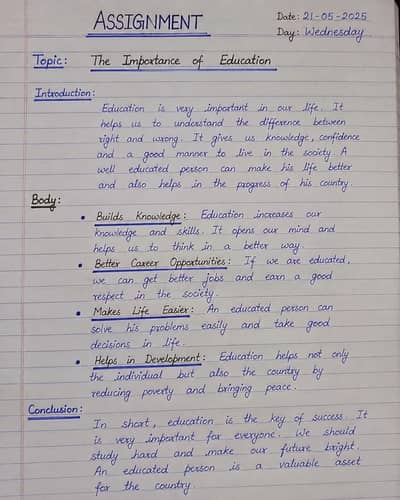 ASSIGNMENT
Date: 21-05-2025
Day: Wednesday
Topic: The Importance of Education
Introduction:
Education is very important in our life. It
helps us to understand the difference between
right and wrong. It gives us knowledge, confidence
and a good manner to live in the society. A
well educated person can make his life better
and also helps in the progress of his country.
Body:
• Builds Knowledge: Education increases our
knowledge and skills. It opens our mind and
helps us to think in a better way.
• Better Career Opportunities: If we are educated,
we can get better jobs and earn a good
respect in the society.
• Makes Life Easier: An educated person can
solve his problems easily and take good
decisions in life.
• Helps in Development: Education helps not only
the individual but also the country by
reducing poverty and bringing peace.
Conclusion:
In short, education is the key of success. It
is very important for everyone. We should
study hard and make our future bright.
An educated person is a valuable asset
for the country.